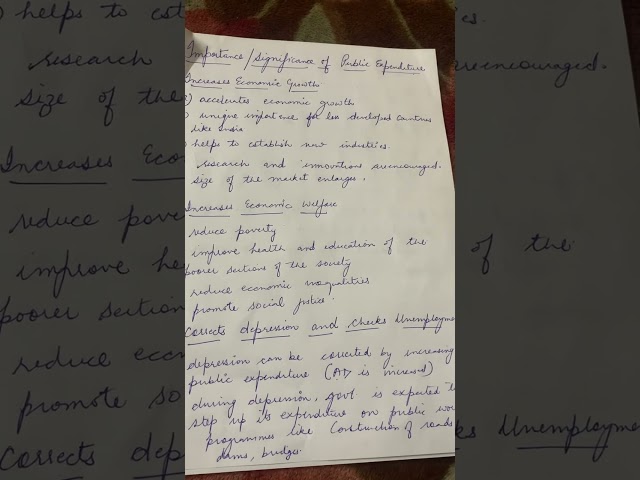 Importance/Significance of Public Expenditure
Increases Economic Growth
accelerates economic growth
unique importance for less developed countries
like India
helps to establish new industries.
research and innovations are encouraged.
size of the market enlarges.
Increases Economic Welfare
reduce poverty
improve health and education of the
poorer sections of the society
reduce economic inequalities
promote social justice.
Corrects depression and Checks Unemployme
depression can be corrected by increasing
public expenditure (AD is increased)
during depression, govt is expected t
step up its expenditure on public wor
programmes like Construction of roads
dams, bridges.